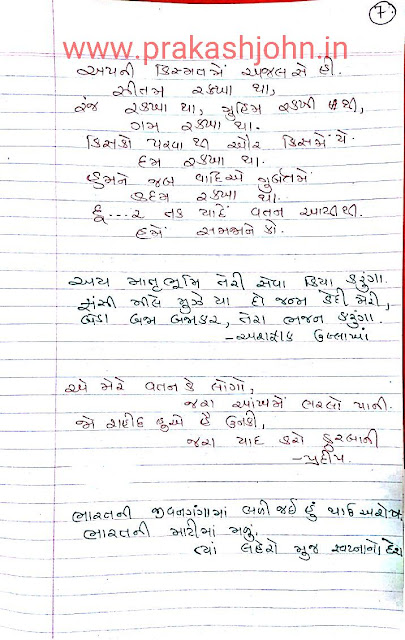 7
www.prakashjohn.in
અપની કિસ્મતમેં અજલ સે હી.
સીતમ રક્ખા થા,
રંજ રક્ખા થા, મુહિમ રક્ખી થી,
ગમ રક્ખા થા.
કિસકો પરવા થી ઔર કિસમેં યે
દમ રક્ખા થા.
હમને જબ વાદિએ ગુર્બતમેં
કદમ રક્ખા થા.
દૂ...ર તક યાદેં વતન આયી થી
હમેં સમજાને કો.
અય માતૃભૂમિ તેરી સેવા કિયા કરુંગા.
ફાંસી મીલે મુઝે યા હો જન્મ કેદી મેરી,
બેડા બજા બજાકર, તેરા ભજન કરુંગા.
- અશફાક ઉલ્લાખાં
એ મેરે વતન કે લોગો,
જરા આંખમેં ભરલો પાની.
જો શહીદ હુએ હૈ ઉનકી,
જરા યાદ કરો કુરબાની
- પ્રદીપ.
ભારતની જીવનગંગામાં ભળી જઈ હું થાઉં
ભારતની માટીમાં મળું.
ત્યાં લહેરો મુજ સ્વપ્નાનો દેશ